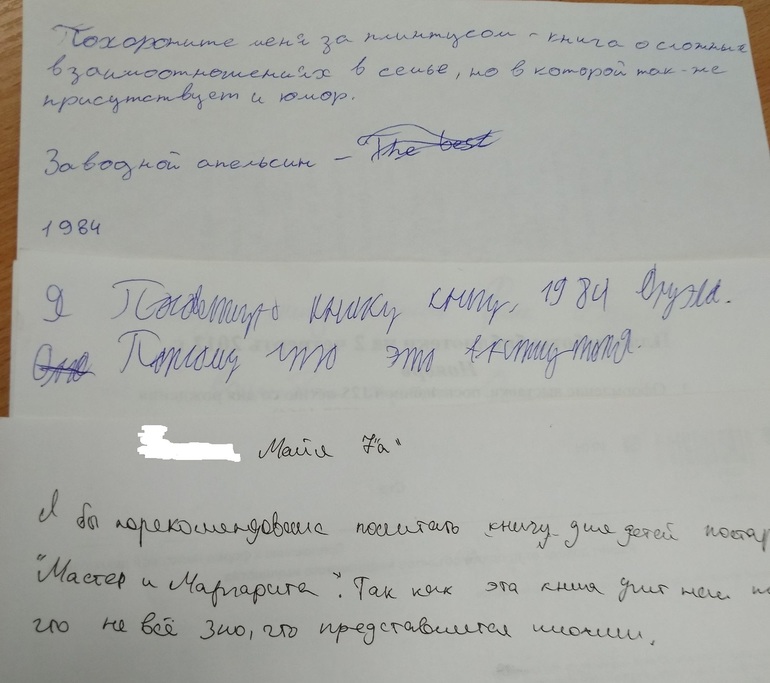 Похороните меня за плинтусом - книга о сложных
взаимоотношениях в семье, но в которой так-же
присутствует и юмор.
Заводной апельсин - The best
1984
Я книжку книгу, 1984
Потому что это
Майя 7"а"
Я бы порекомендовала почитать книгу для детей постар
"Мастер и Маргарита". Так как эта книга учит нас
что не всё зло, что представляется плохим.